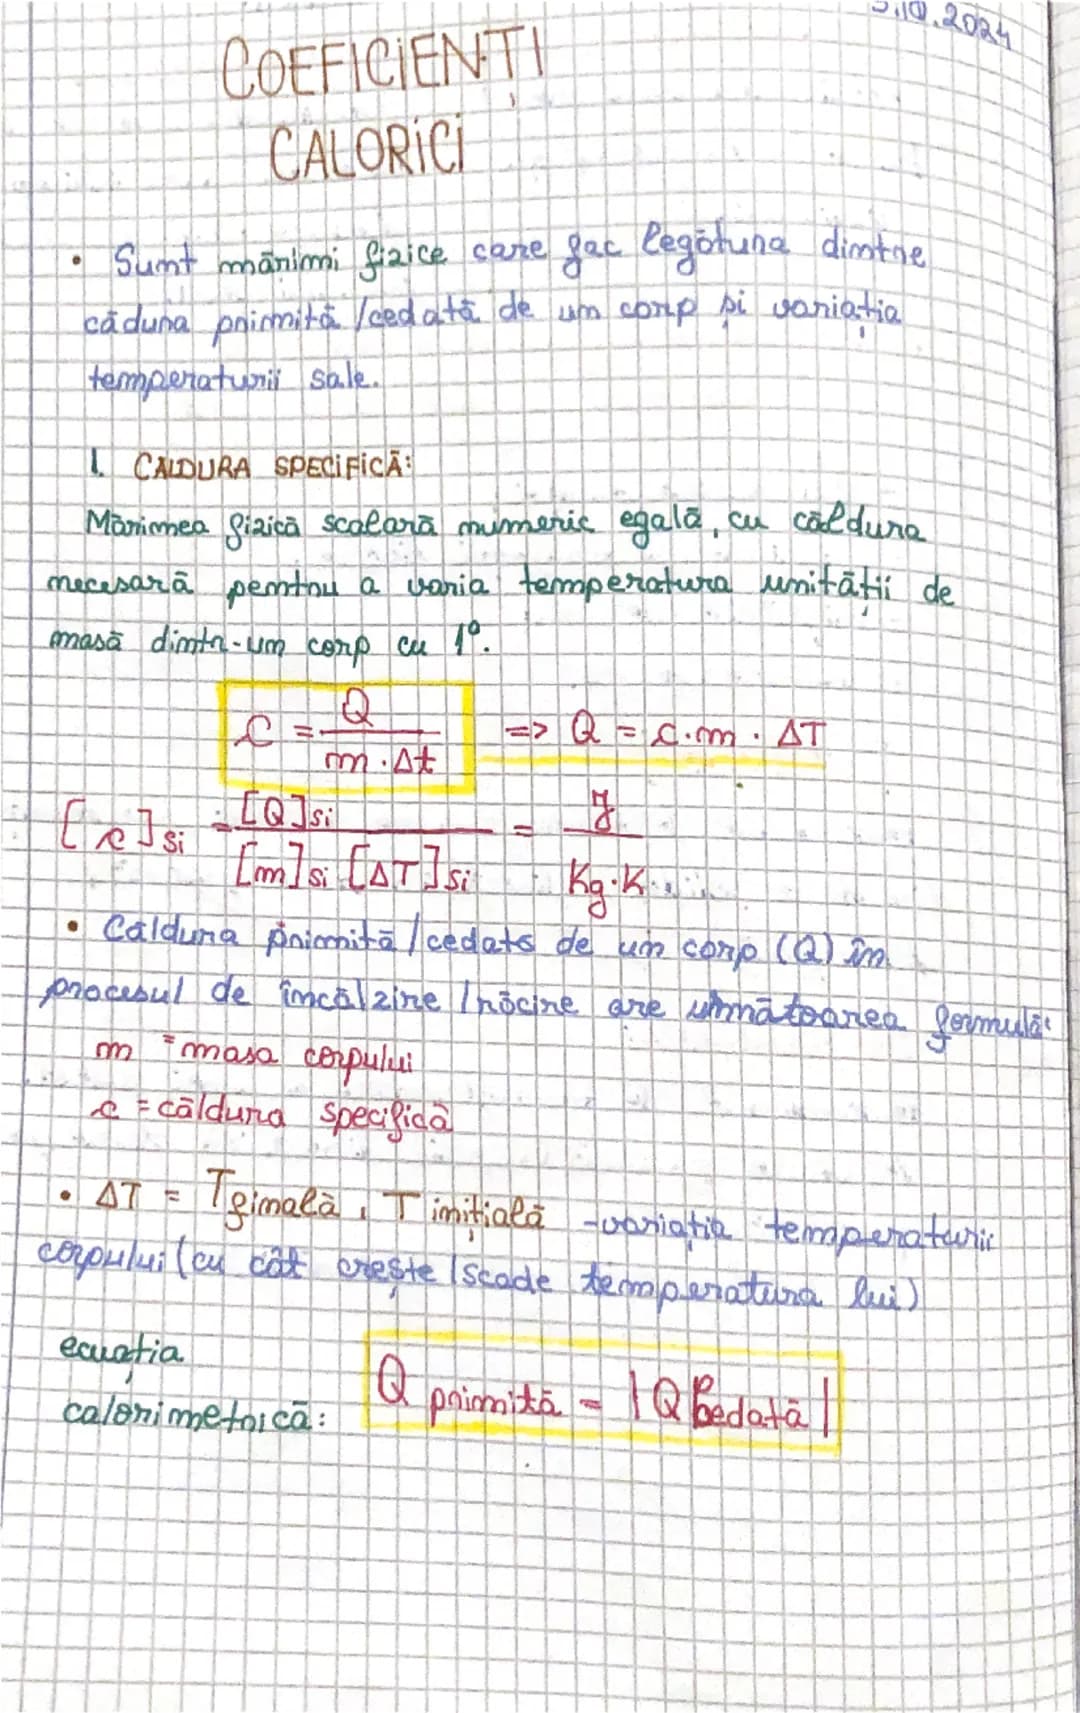 .10.2024
COEFICIENȚI
CALORICI
• Sunt mărimi fizice care fac legătura dintre
cădura primită /cedată de un corp și variația
temperaturii sale.
1. CALDURA SPECIFICĂ:
Mărimea fizică scalară numeric egală, cu căldura
necesară pentru a varia temperatura unității de
masă dintr-un corp cu 1°.
c = Q / m · Δt => Q = c · m · ΔT
[c]si = [Q]si / [m]si [ΔT]si = J / Kg·K
• Căldura primită / cedată de un corp (Q) în
procesul de încălzire / răcire are următoarea formulă:
m = masa corpului
c = căldura specifică
• ΔT = T finală, T inițială - variația temperaturii
corpului (cu cât crește / scade temperatura lui)
ecuația
calorimetrică: Q primită = |Q cedată|